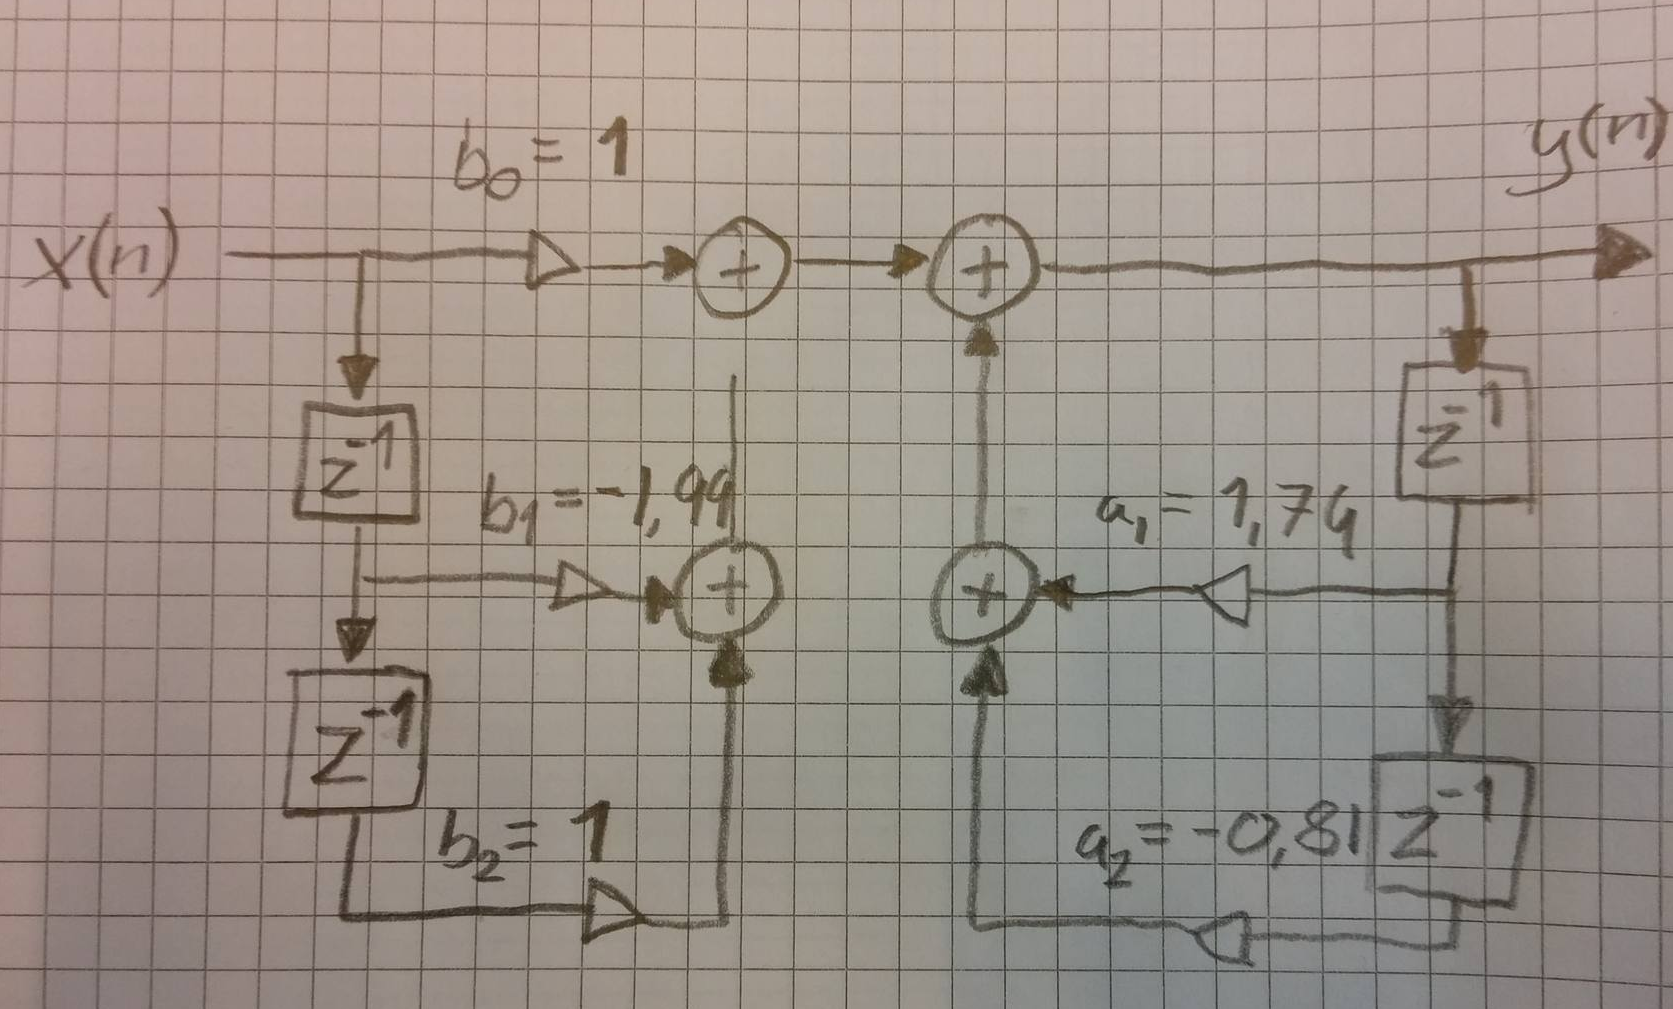 b₀ = 1
y(n)
x(n)
+
+
z⁻¹
z⁻¹
b₁ = -1,99
a₁ = 1,74
+
+
z⁻¹
z⁻¹
b₂ = 1
a₂ = -0,81